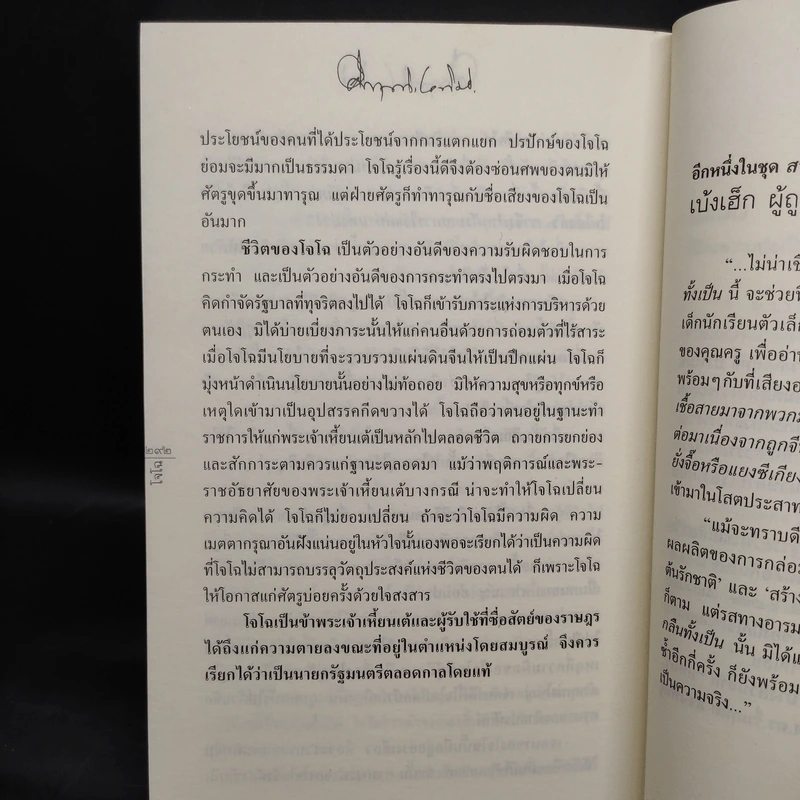 ประโยชน์ของคนที่ได้ประโยชน์จากการแตกแยก ปรปักษ์ของโจโฉ
ย่อมจะมีมากเป็นธรรมดา โจโฉรู้เรื่องนี้ดีจึงต้องซ่อนศพของตนมิให้
ศัตรูขุดขึ้นมาทารุณ แต่ฝ่ายศัตรูก็ทำทารุณกับชื่อเสียงของโจโฉเป็น
อันมาก
ชีวิตของโจโฉ เป็นตัวอย่างอันดีของความรับผิดชอบในการ
กระทำ และเป็นตัวอย่างอันดีของการกระทำตรงไปตรงมา เมื่อโจโฉ
คิดกำจัดรัฐบาลที่ทุจริตลงไปได้ โจโฉก็เข้ารับภาระแห่งการบริหารด้วย
ตนเอง มิได้บ่ายเบี่ยงภาระนั้นให้แก่คนอื่นด้วยการถ่อมตัวที่ไร้สาระ
เมื่อโจโฉมีนโยบายที่จะรวบรวมแผ่นดินจีนให้เป็นปึกแผ่น โจโฉก็
มุ่งหน้าดำเนินนโยบายนั้นอย่างไม่ท้อถอย มิให้ความสุขหรือทุกข์หรือ
เหตุใดเข้ามาเป็นอุปสรรคกีดขวางได้ โจโฉถือว่าตนอยู่ในฐานะทำ
ราชการให้แก่พระเจ้าเหี้ยนเต้เป็นหลักไปตลอดชีวิต ถวายการยกย่อง
และสักการะตามควรแก่ฐานะตลอดมา แม้ว่าพฤติการณ์และพระ-
ราชอัธยาศัยของพระเจ้าเหี้ยนเต้บางกรณี น่าจะทำให้โจโฉเปลี่ยน
ความคิดได้ โจโฉก็ไม่ยอมเปลี่ยน ถ้าจะว่าโจโฉมีความผิด ความ
เมตตากรุณาอันฝังแน่นอยู่ในหัวใจนั้นเองพอจะเรียกได้ว่าเป็นความผิด
ที่โจโฉไม่สามารถบรรลุวัตถุประสงค์แห่งชีวิตของตนได้ ก็เพราะโจโฉ
ให้โอกาสแก่ศัตรูบ่อยครั้งด้วยใจสงสาร
โจโฉเป็นข้าพระเจ้าเหี้ยนเต้และผู้รับใช้ที่ซื่อสัตย์ของราษฎร
ได้ถึงแก่ความตายลงขณะที่อยู่ในตำแหน่งโดยสมบูรณ์ จึงควร
เรียกได้ว่าเป็นนายกรัฐมนตรีตลอดกาลโดยแท้
๒๙๒
โจโฉ
อีกหนึ่งในชุด
เบ้งเฮ็ก ผู้ถู
“...ไม่น่าเชื
ทั้งเป็น นี้ จะช่วย
เด็กนักเรียนตัวเล็ก
ของคุณครู เพื่ออ่า
พร้อมๆ กับที่เสียง
เชื้อสายมาจากพวก
ต่อมาเนื่องจากลูกจี
ยั่งจื๊อหรือแยงซีเกียง
เข้ามาในโสตประสาท
“แม้จะทราบดี
ผลผลิตของการกล่อม
ต้นรักชาติ’ และ ‘สร้าง
ก็ตาม แต่รสทางอารม
กลืนทั้งเป็น นั้น มิได้
ซ้ำอีกกี่ครั้ง ก็ยังพร้อม
เป็นความจริง...”